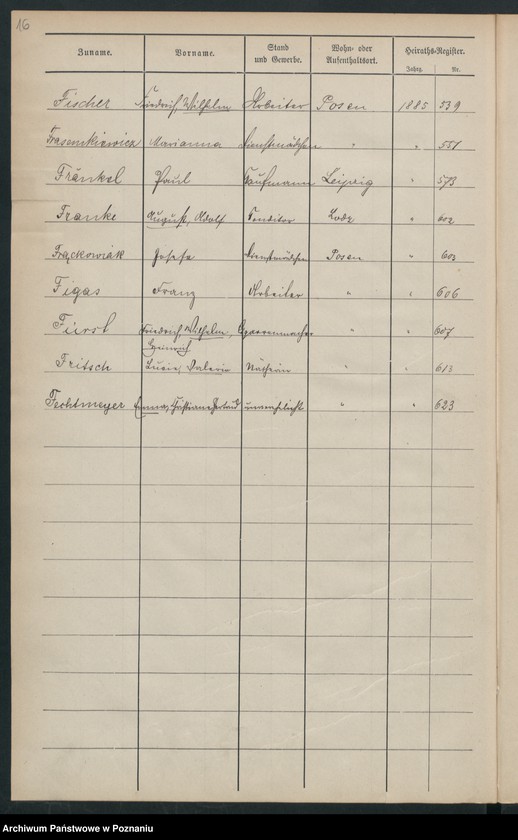 16
Zuname. Vorname. Stand und Gewerbe. Wohn- oder Aufenthaltsort. Heiraths-Register.
Jahrg. Nr.
Fischer Friedrich Wilhelm Arbeiter Posen 1885 539
Marianna Dienstmädchen " " 551
Fränkel Paul Kaufmann Leipzig " 573
Franke August, Adolf Conditor Lodz " 602
Frąckowiak Josefa Dienstmädchen Posen " 603
Figas Franz Arbeiter " " 606
Fürst Friedrich Wilhelm, " " 607
Heinrich
Fritsch Lucie, Valerie Nätherin " " 613
Fechtmeyer unverehelicht " " 623
Archiwum Państwowe w Poznaniu